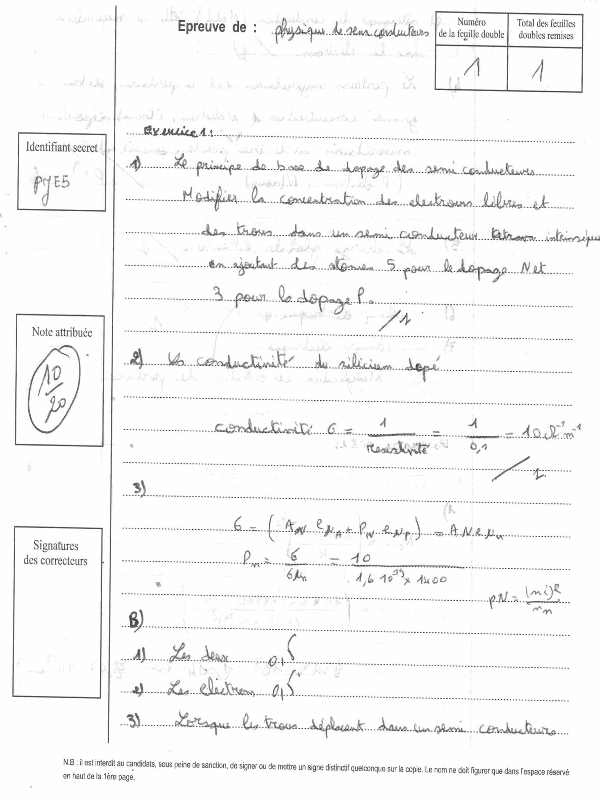 Epreuve de : physique de semi conducteurs
Numéro de la feuille double
1
Total des feuilles doubles remises
1
Identifiant secret
PJE5
Note attribuée
10/20
Signatures des correcteurs
Exercice 1 :
1) Le principe de base de dopage des semi conducteurs
Modifier la concentration des electrons libres et
des trous dans un semi conducteur intrinsèque
en ajoutant des atomes 5 pour le dopage N et
3 pour la dopage P.
/1
2) La conductivité du silicium dopé
conductivité σ = 1/resistivité = 1/0,1 = 10 Ω⁻¹ m⁻¹
/1
3)
pN = (ni)²/nn
B)
1) Les deux 0,5
2) Les eléctrons 0,5
3) Lorsque les trous déplacent dans un semi conducteurs
N.B : il est interdit au candidats, sous peine de sanction, de signer ou de mettre un signe distinctif quelconque sur la copie. Le nom ne doit figurer que dans l'espace réservé
en haut de la 1ère page.